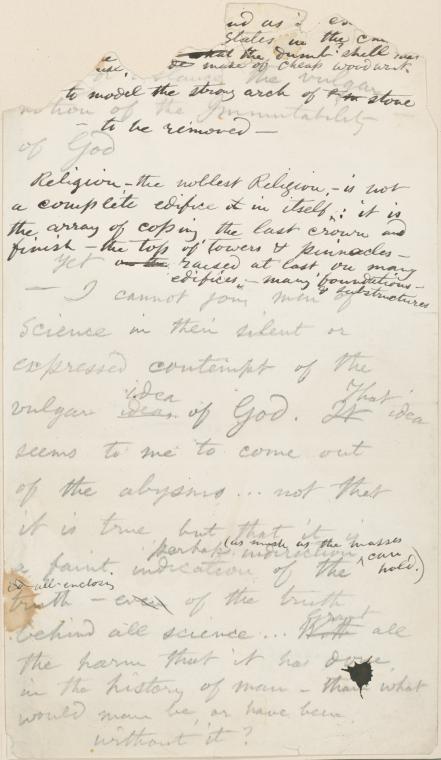 nd as
States in the
that the dumb shell was
use, made of cheap woodwork
to model the strong arch of stone
notion of the Immutability
to be removed —
of God
Religion, — the noblest Religion, — is not
a complete edifice in itself; it is
the array of coping the last crown and
finish — the top of towers & pinnacles —
Yet raised at last, on many
edifices, — many foundations —
& substructures
— I cannot join men of
Science in their silent or
expressed contempt of the
idea That
vulgar ideas of God. It idea
seems to me to come out
of the abysms ... not that
it is true but that it is
(as much as the masses
perhaps indirection can
a faint indication of the hold.)
all-enclosing
truth — even of the truth
Grant
behind all science ... all
the harm that it has done,
in the history of man — than what
would man be, or have been,
without it?